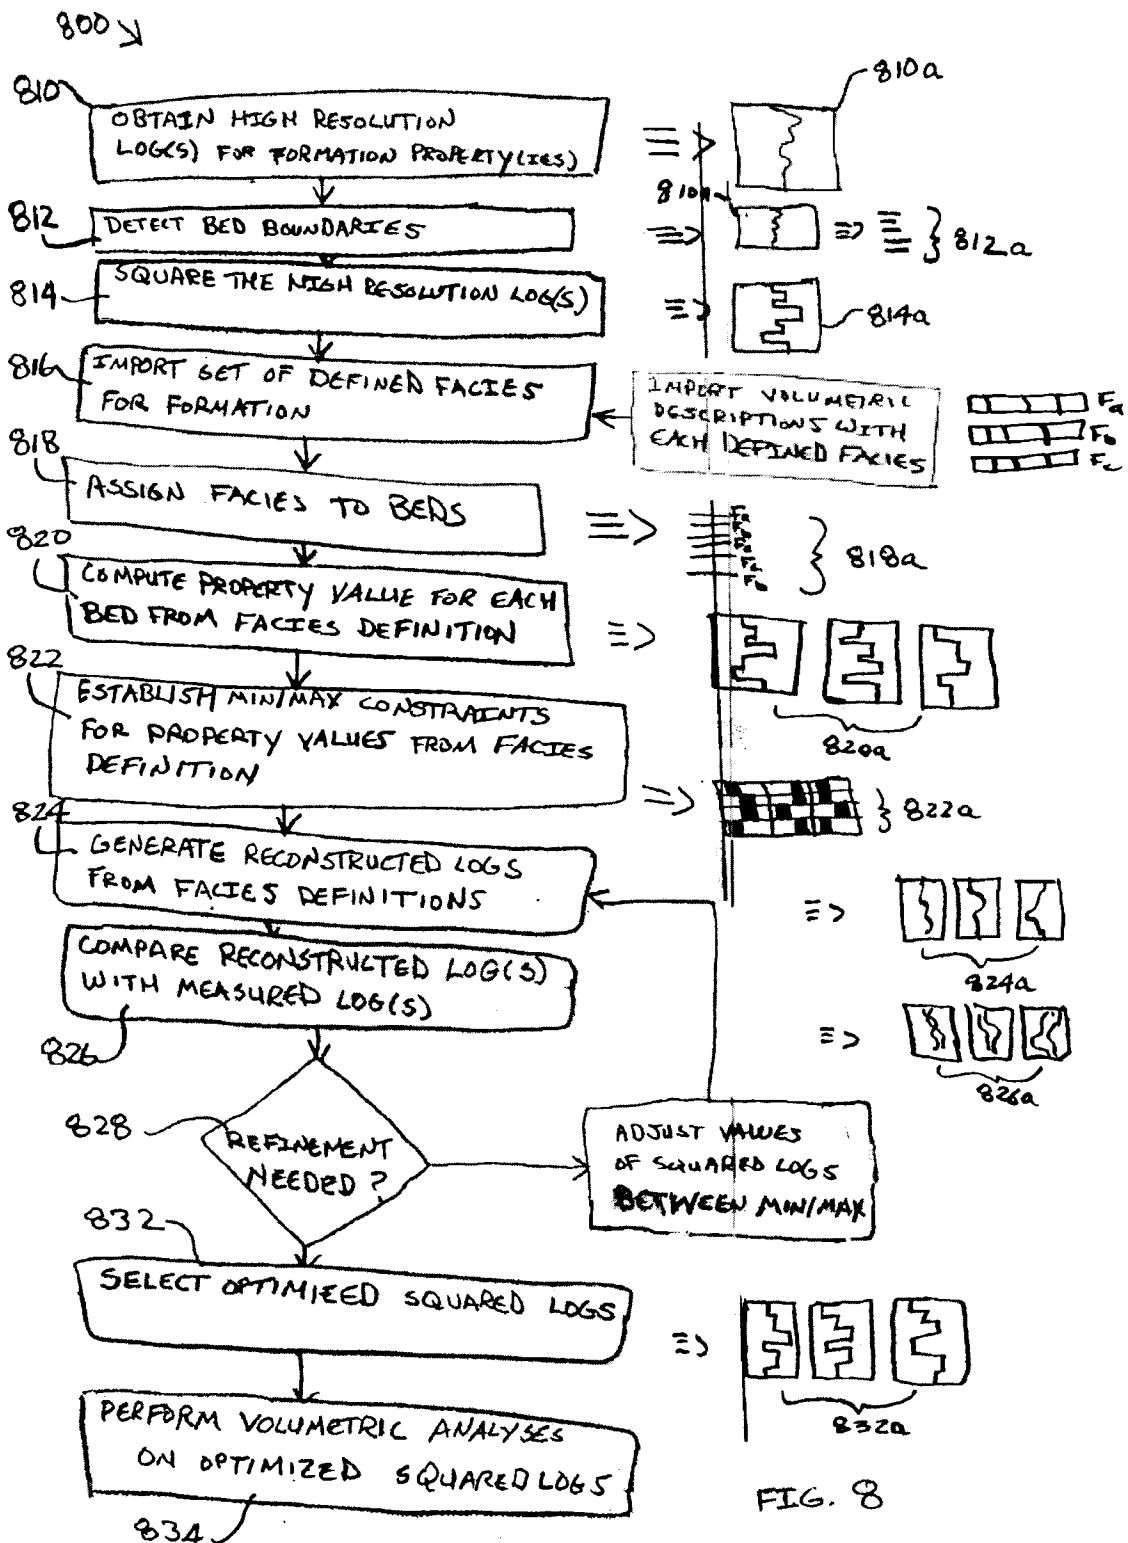 800
810
OBTAIN HIGH RESOLUTION
LOG(S) FOR FORMATION PROPERTY(IES)
810a
812
DETECT BED BOUNDARIES
810a
812a
814
SQUARE THE HIGH RESOLUTION LOG(S)
814a
816
IMPORT SET OF DEFINED FACIES
FOR FORMATION
IMPORT VOLUMETRIC
DESCRIPTIONS WITH
EACH DEFINED FACIES
Fa
Fb
Fc
818
ASSIGN FACIES TO BEDS
818a
820
COMPUTE PROPERTY VALUE FOR EACH
BED FROM FACIES DEFINITION
820a
822
ESTABLISH MIN/MAX CONSTRAINTS
FOR PROPERTY VALUES FROM FACIES
DEFINITION
822a
824
GENERATE RECONSTRUCTED LOGS
FROM FACIES DEFINITIONS
824a
COMPARE RECONSTRUCTED LOG(S)
WITH MEASURED LOG(S)
826
826a
828
REFINEMENT
NEEDED?
ADJUST VALUES
OF SQUARED LOGS
BETWEEN MIN/MAX
832
SELECT OPTIMIZED SQUARED LOGS
832a
PERFORM VOLUMETRIC ANALYSES
ON OPTIMIZED SQUARED LOGS
834
FIG. 8